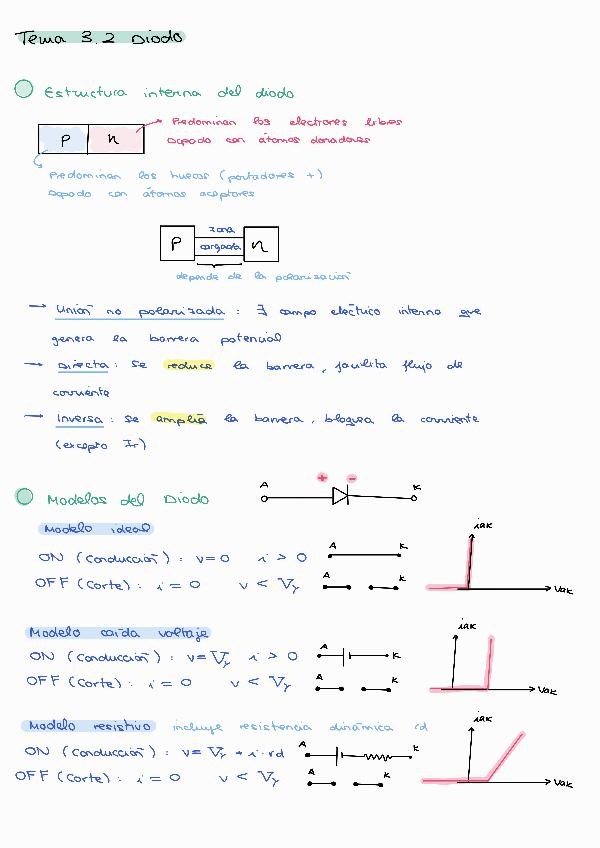 Tema 3.2 Diodo
Estructura interna del diodo
P n
Predominan los electrones libres
Dopado con átomos donadores
Predominan los huecos (portadores +)
Dopado con átomos aceptores
P zona cargada n
depende de la polarización
→ Unión no polarizada : ∃ campo eléctrico interno que
genera la barrera potencial
→ Directa : se reduce la barrera, facilita flujo de
corriente
→ Inversa : se amplía la barrera, bloquea la corriente
(excepto Ir)
Modelos del Diodo
A + - K
Modelo ideal
ON (Conducción) : v=0 i > 0
A K
OFF (Corte) : i = 0 v < Vγ
A K
iak
Vak
Modelo caída voltaje
ON (Conducción) : v= Vγ i > 0
A K
OFF (Corte) : i = 0 v < Vγ
A K
iak
Vak
Modelo resistivo incluye resistencia dinámica rd
ON (Conducción) : v= Vγ + i·rd
A K
OFF (Corte) : i = 0 v < Vγ
A K
iak
Vak